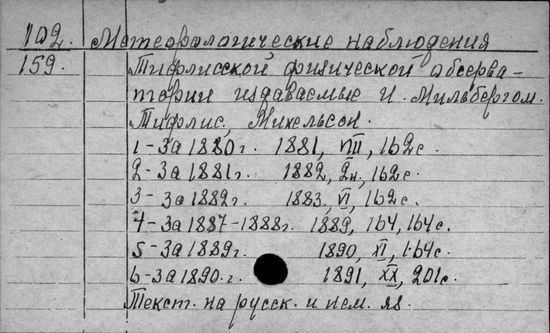 102. Метеорологические наблюдения
159. Тифлисской физической обсерва-
тории издаваемые И. Мильбергом.
Тифлис, Михельсон.
1 - За 1880 г. 1881, VIII, 162 с.
2 - За 1881 г. 1882, 162 с.
3 - За 1882 г. 1883, VI, 162 с.
4 - За 1887-1888 г. 1889, 164, 164 с.
5 - За 1889 г. 1890, XI, 164 с.
6 - За 1890 г. 1891, XX, 201 с.
Текст. на русск. и нем. яз.